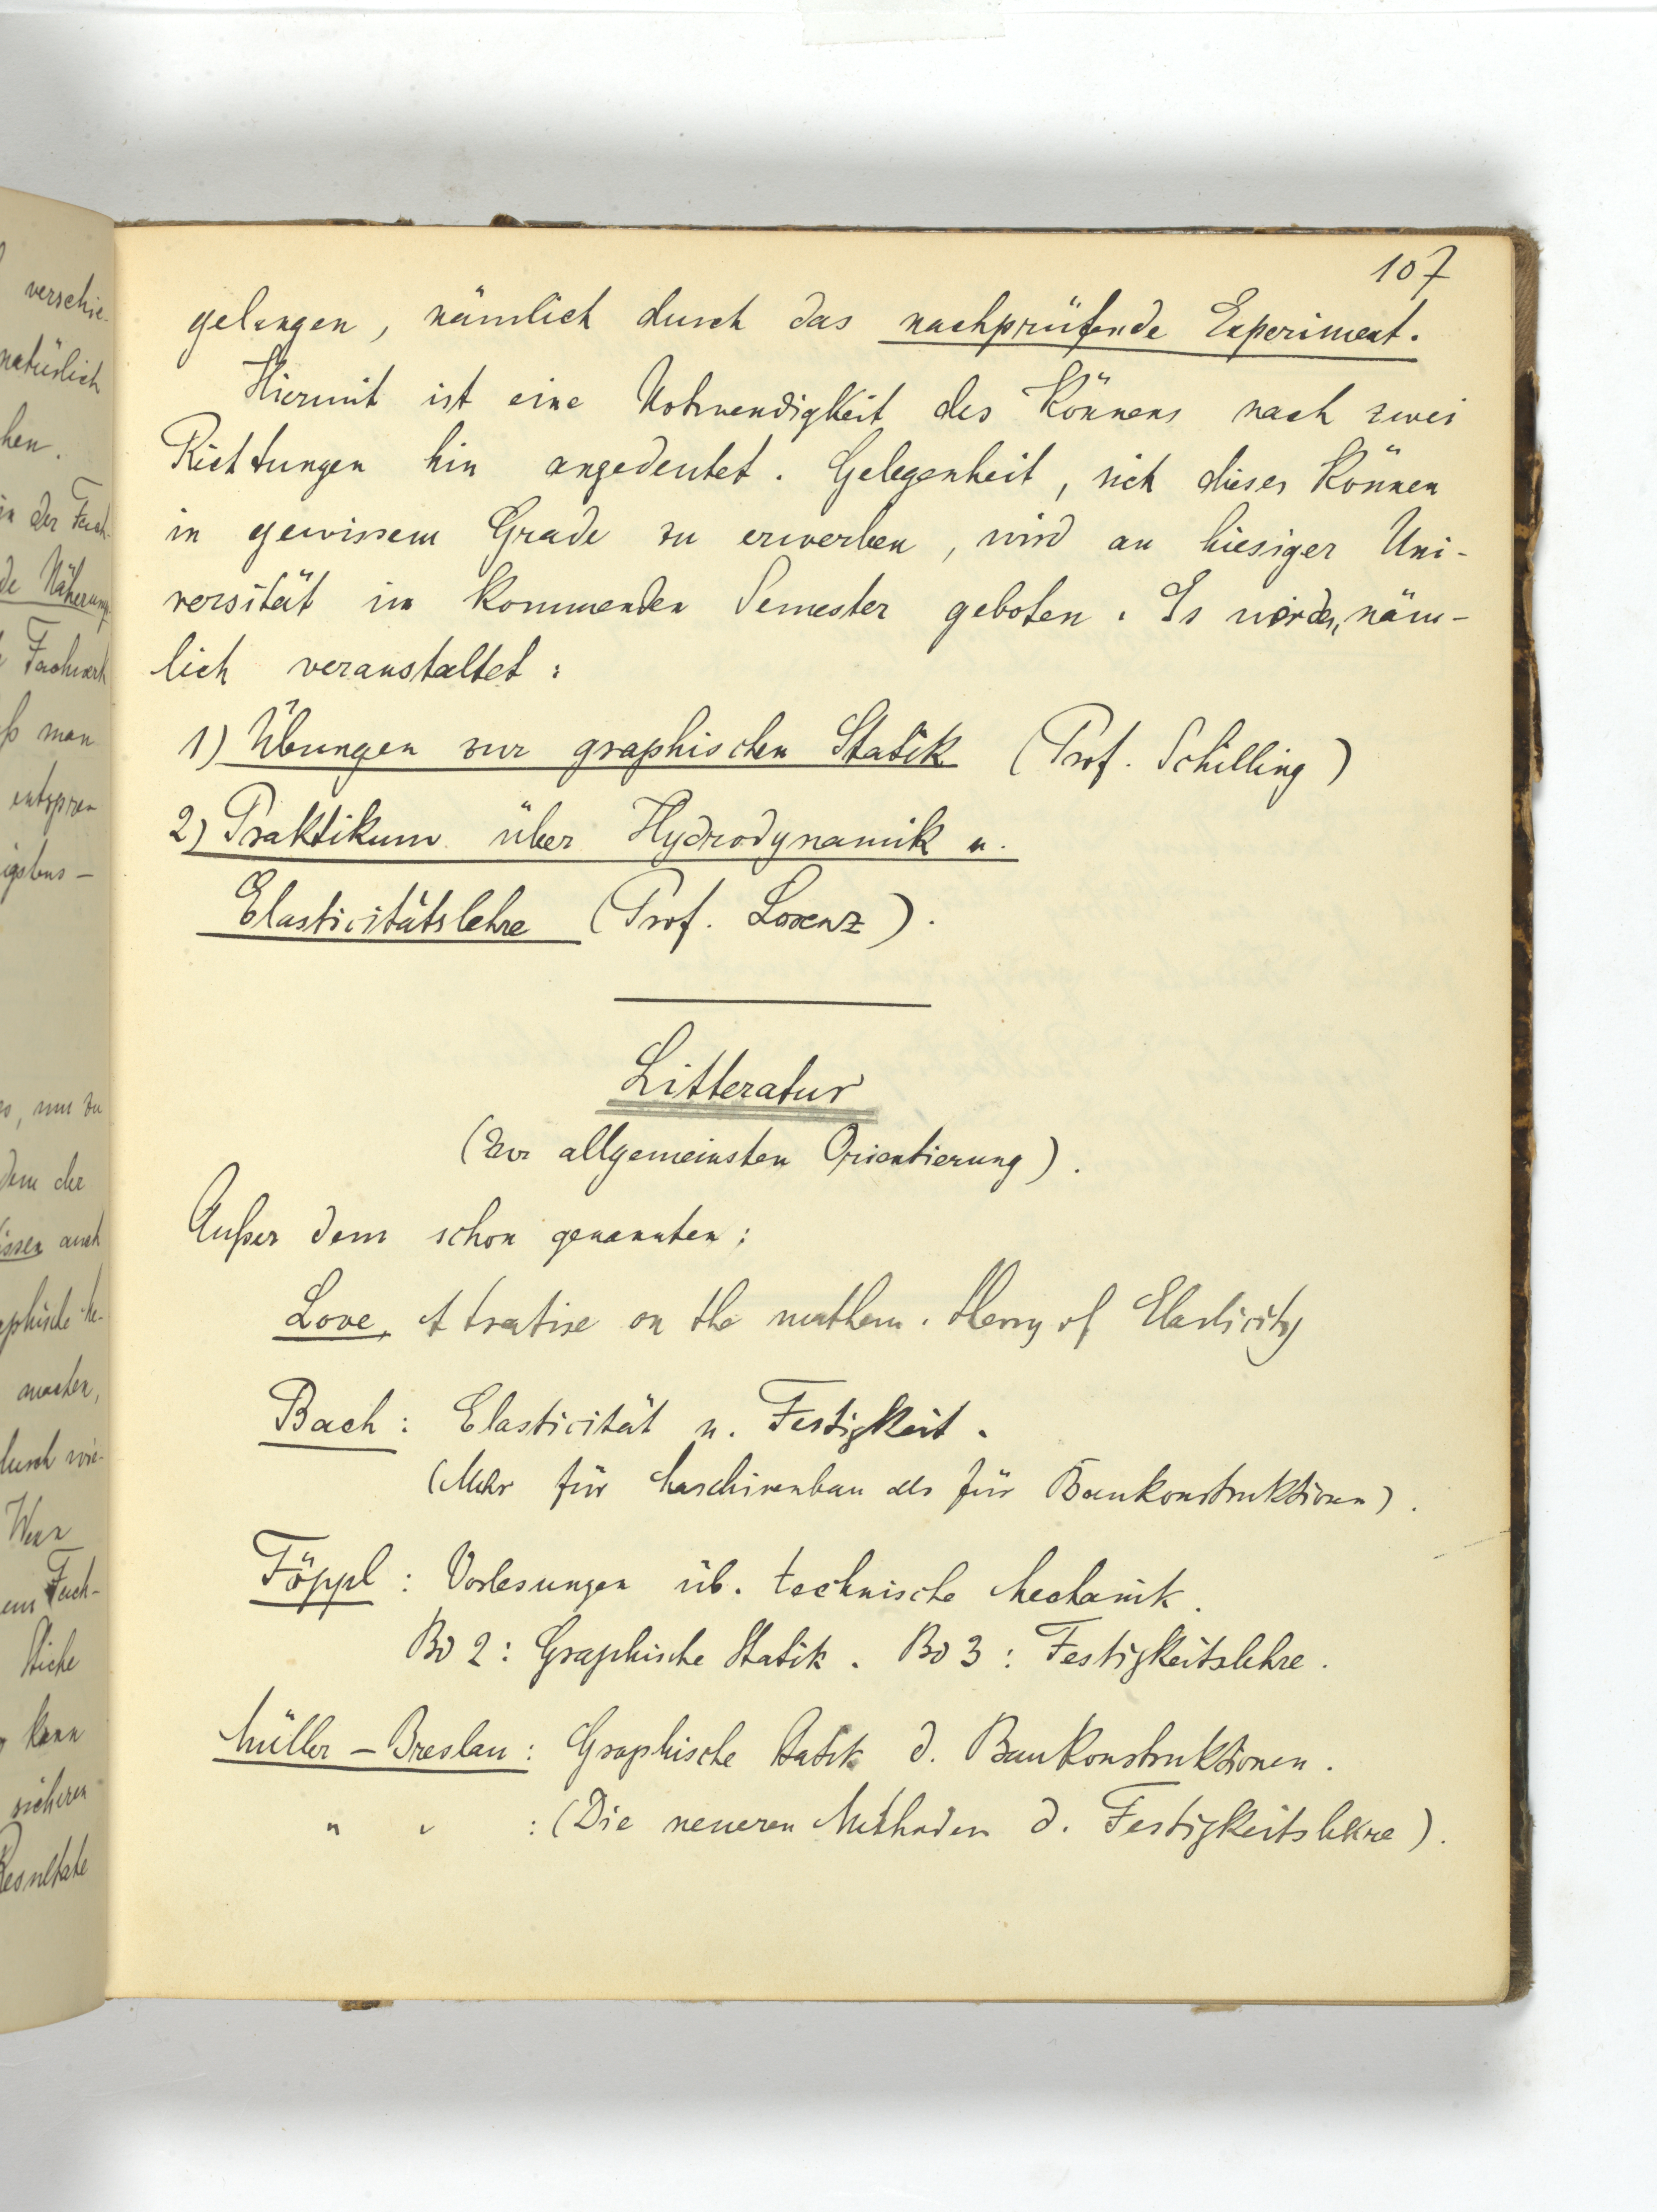 107
gelangen, nämlich durch das nachprüfende Experiment.
Hiermit ist eine Notwendigkeit des Könnens nach zwei
Richtungen hin angedeutet. Gelegenheit, sich dieses Können
in gewissem Grade zu erwerben, wird an hiesiger Uni-
versität im kommenden Semester geboten. Es werden näm-
lich veranstaltet:
1) Übungen zur graphischen Statik (Prof. Schilling)
2) Praktikum über Hydrodynamik u.
Elasticitätslehre (Prof. Lorenz).
Litteratur
(Zur allgemeinsten Orientierung).
Außer dem schon genannten:
Love, A treatise on the mathem. theory of Elasticity
Bach: Elasticität u. Festigkeit.
(Mehr für Maschinenbau als für Baukonstruktionen).
Föppl: Vorlesungen üb. technische Mechanik.
Bd 2: Graphische Statik. Bd 3: Festigkeitslehre.
Müller-Breslau: Graphische Statik d. Baukonstruktionen.
" " : (Die neueren Methoden d. Festigkeitslehre).
verschie-
natürlich
hen.
in der Fach-
de Näherung
Fachwerk
ß man
igstens -
dem die
issen auch
machen,
durch wie-
Wenn
em Fach-
kann
sicheren
Resultate